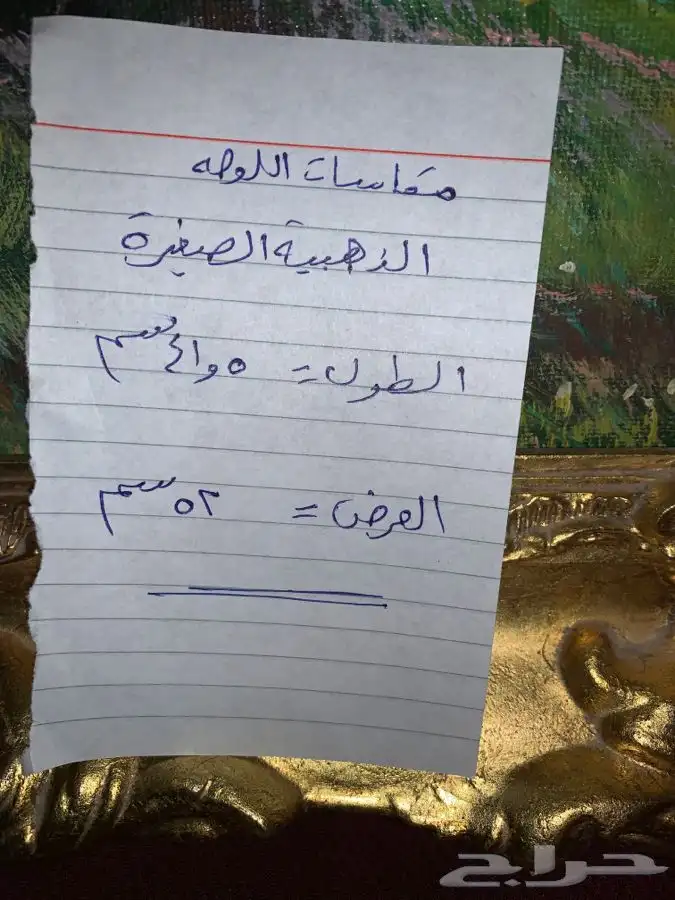 مقاسات اللوحه
الذهبية الصغيرة
الطول = ٥و٤١ سم
العرض = ٥٢ سم
حراج